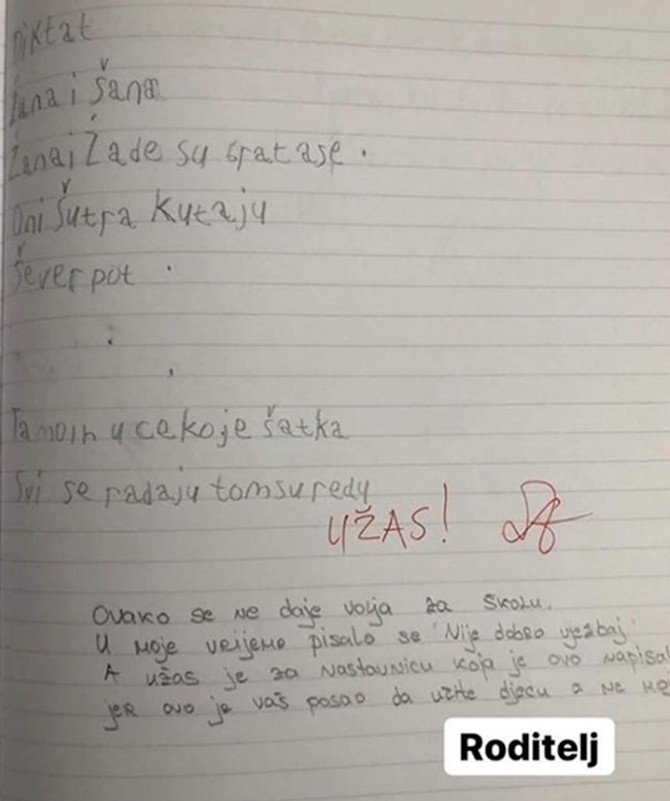 diktat
Žana i šana
Žana i Žade su spatase.
Oni šutra kutaju
Šever pot.
Tamoih u cekoje šatka
Svi se radaju tomsuredy
UŽAS!
Ovako se ne daje volja za školu.
U moje vrijeme pisalo se "Nije dobro vježbaj"
A užas je za nastavnicu koja je ovo napisal
jer ovo je vaš posao da učite djecu a ne
Roditelj